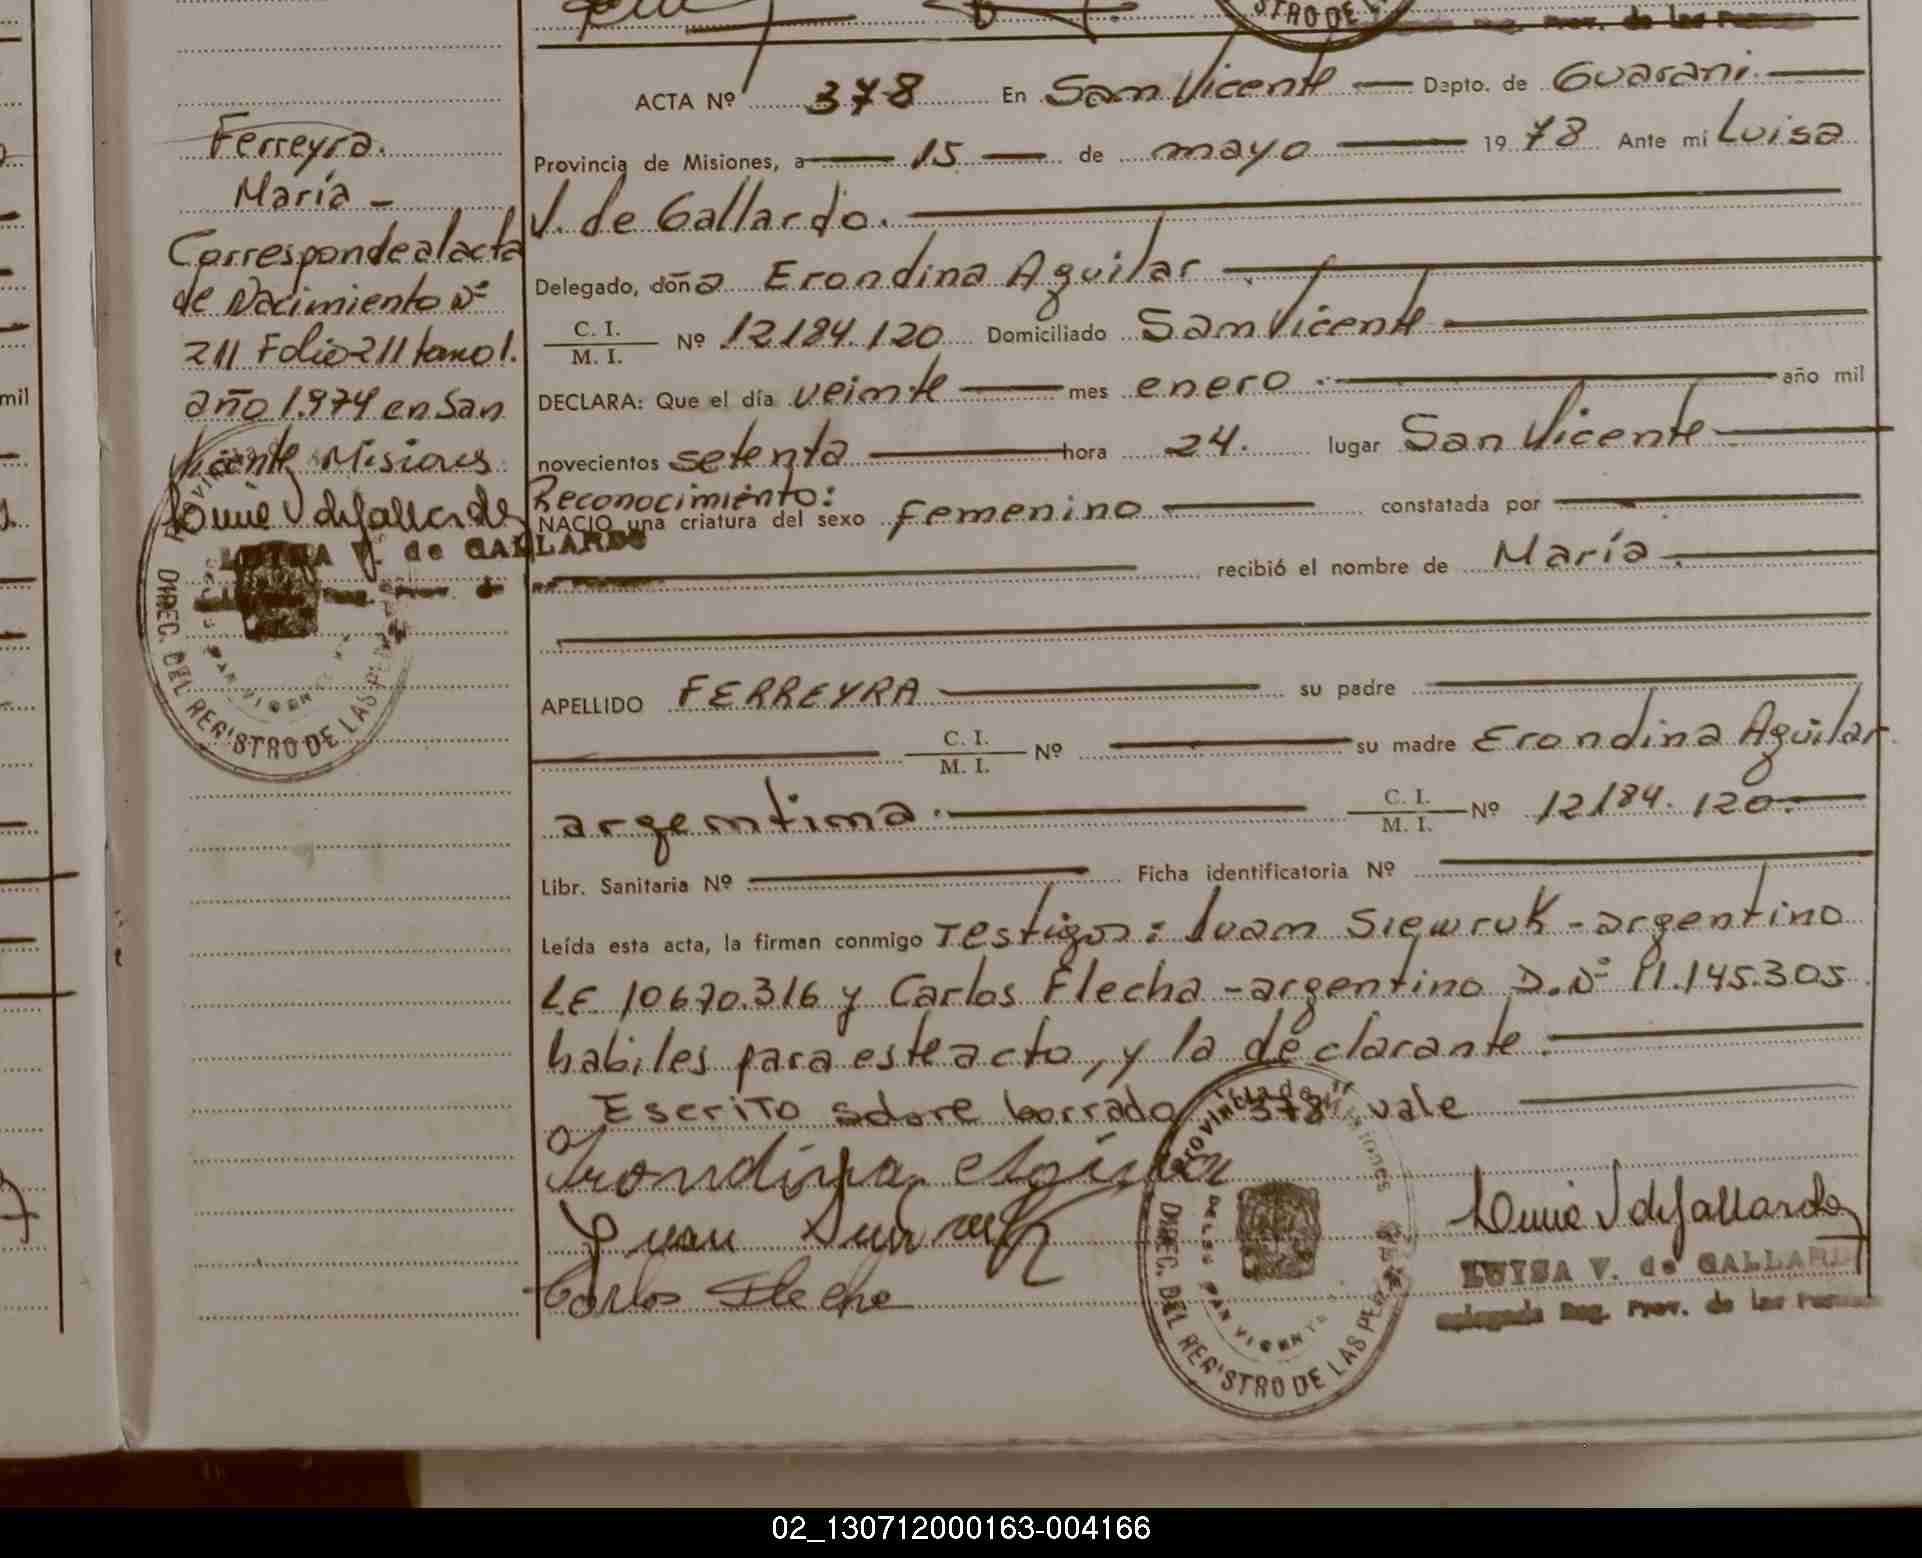 ACTA Nº 378 En San Vicente Depto. de Guarani.
Provincia de Misiones, a 15 de mayo 1978 Ante mi Luisa
V. de Gallardo.
Delegado, doña Erondina Aguilar
C. I. / M. I. Nº 12184.120 Domiciliado San Vicente
DECLARA: Que el día veinte mes enero año mil
novecientos setenta hora 24. lugar San Vicente
Reconocimiento:
NACIO una criatura del sexo femenino constatada por
recibió el nombre de María
APELLIDO FERREYRA su padre
C. I. / M. I. Nº su madre Erondina Aguilar
argentina. C. I. / M. I. Nº 12184.120.
Libr. Sanitaria Nº Ficha identificatoria Nº
Leída esta acta, la firman conmigo Testigos: Juan Siewruk - argentino
LE 10670.316 y Carlos Flecha - argentino D.Nº 11.145.305
habiles para este acto, y la declarante.
Escrito sobre borrado "378" vale
Carlos Fleche
LUISA V. de GALLARDO
Reg. Prov. de las
Ferreyra.
María -
Corresponde al acta
de Nacimiento Nº
211 Folio 211 tomo 1.
año 1.974 en San
Vicente Misiones
LUISA V. de GALLARDO
Reg. Prov. de
DIREC. DEL REGISTRO DE LAS PER
SAN VICENTE
PROVINCIA de Misiones
DIREC. DEL REGISTRO DE LAS PER
SAN VICENTE
STRO DE L
Prov. de las
mil
02_130712000163-004166